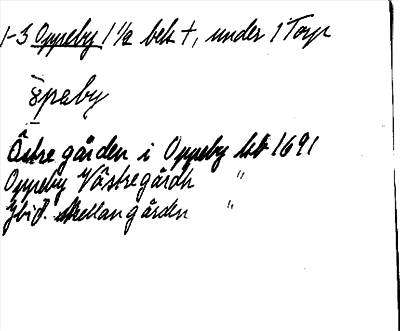 1-3 Oppeby 1 1/2 bek +, under 1 Torp
Öpeby
Östre gården i Oppeby hb 1691
Oppeby Västregårdh "
Ibid. Mellangården "